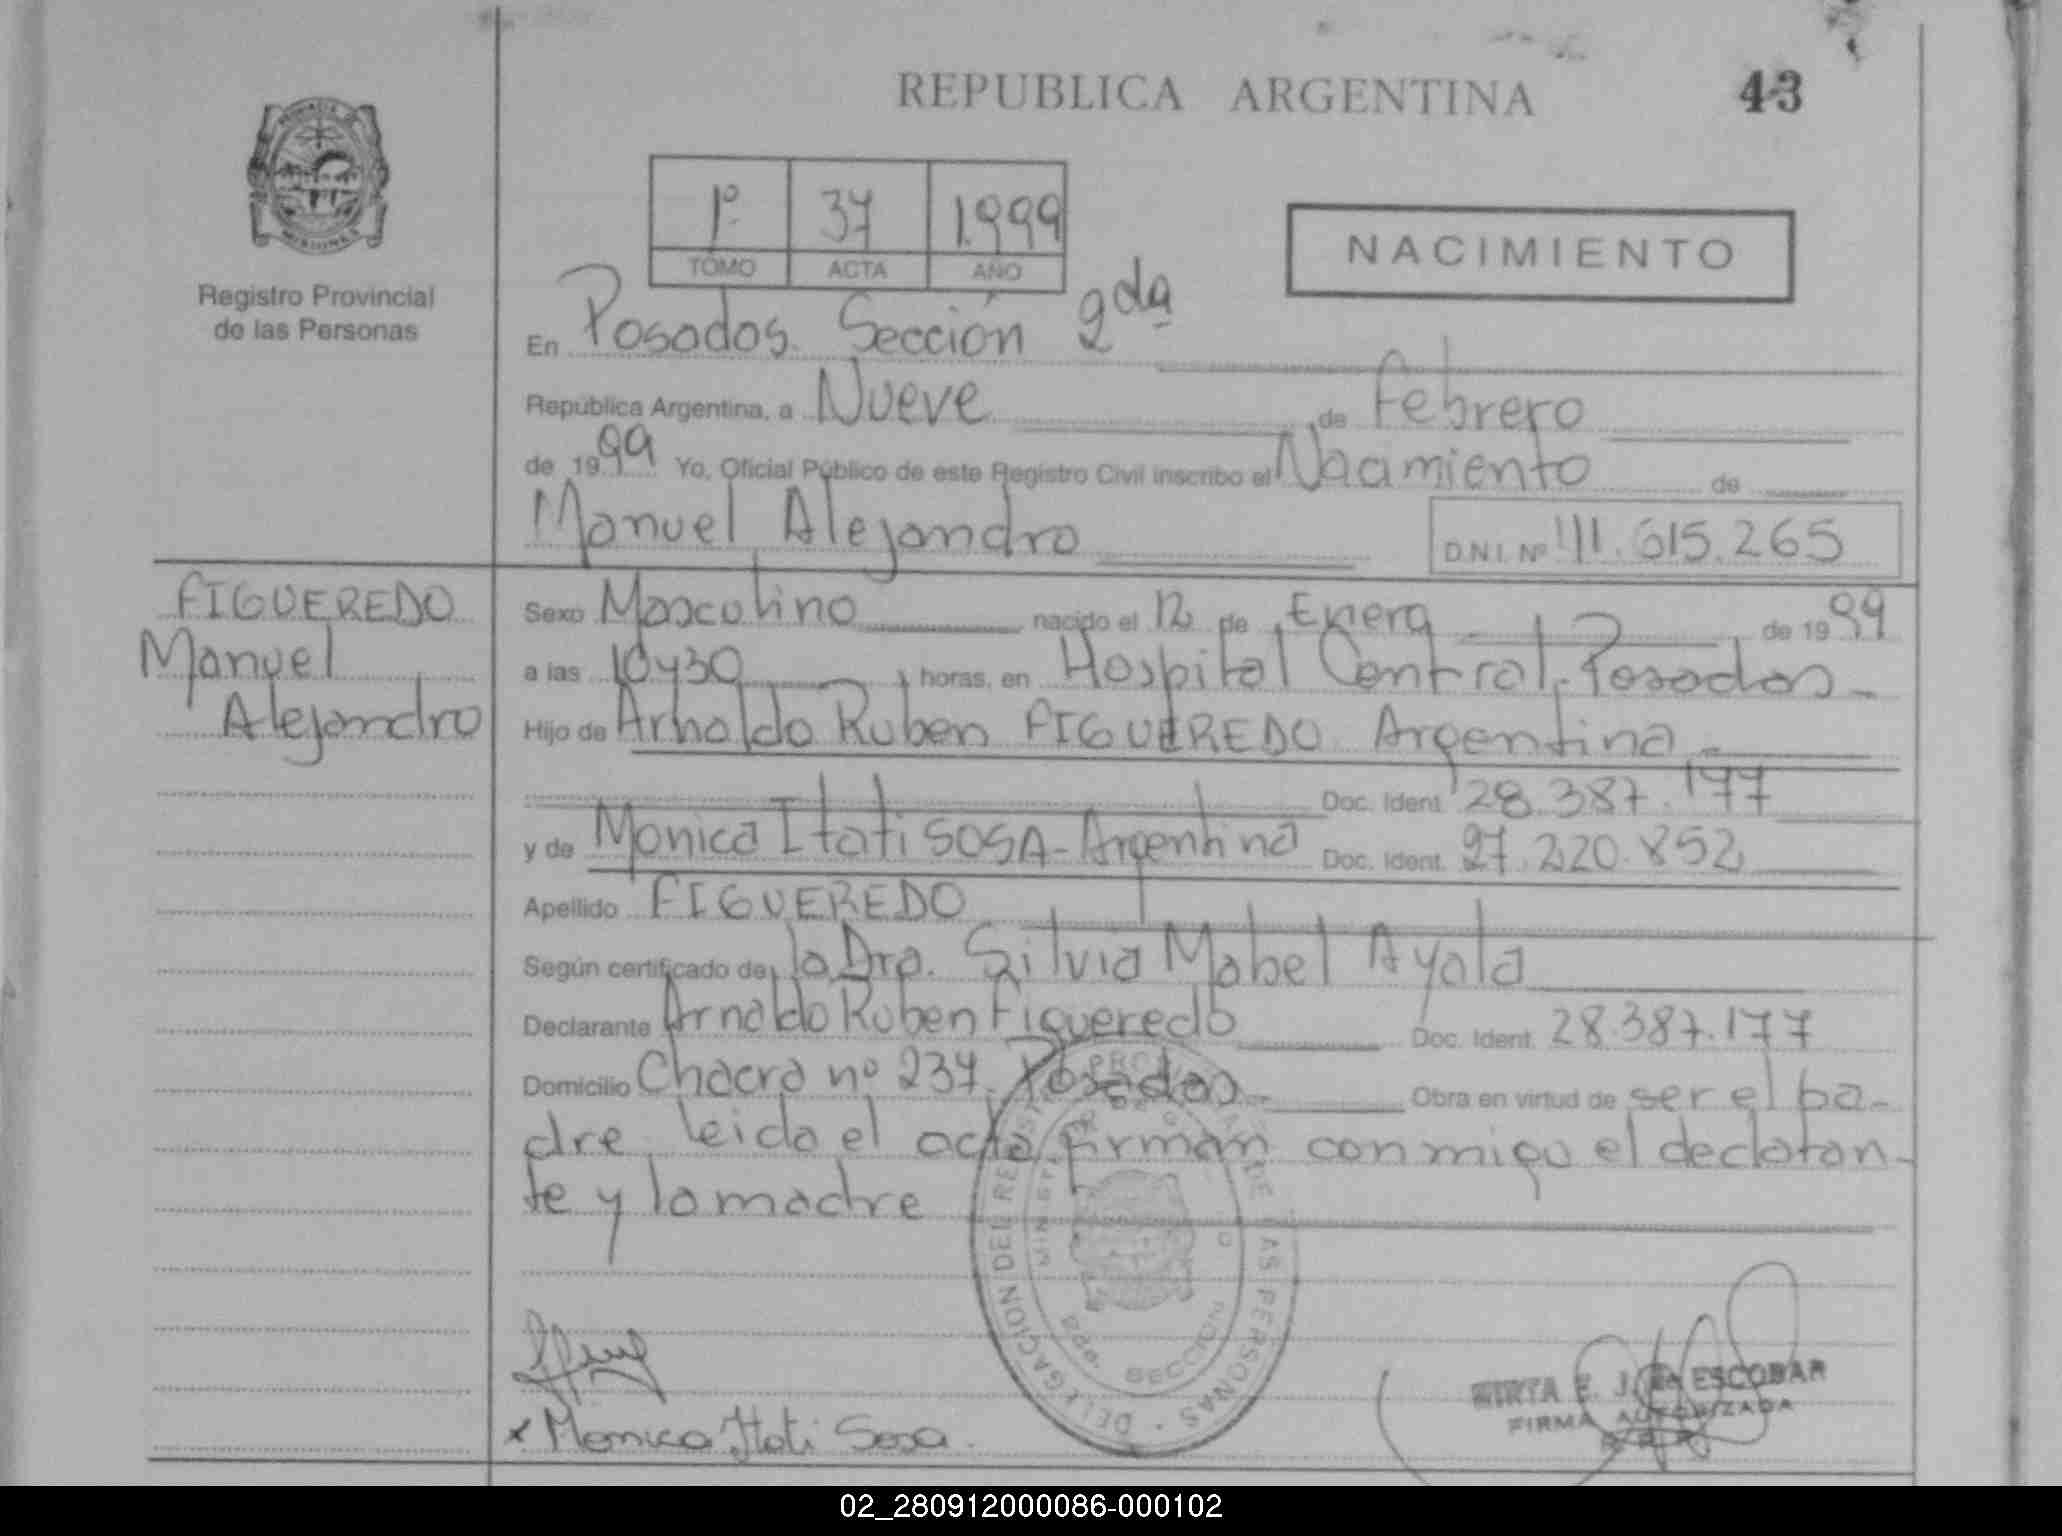 REPUBLICA ARGENTINA
43
1º 37 1.999
TOMO ACTA AÑO
NACIMIENTO
Registro Provincial
de las Personas
En Posadas. Sección 2da
República Argentina, a Nueve de Febrero
de 1999 Yo, Oficial Público de este Registro Civil inscribo el Nacimiento de
Manuel Alejandro
D.N.I. Nº 41.615.265
FIGUEREDO
Manuel
Alejandro
Sexo Masculino nacido el 12 de Enero de 1999
a las 10y30 horas, en Hospital Central. Posadas -
Hijo de Arnaldo Ruben FIGUEREDO Argentina -
Doc. Ident. 28.387.177
y de Monica Itati SOSA - Argentina Doc. Ident. 27.220.852
Apellido FIGUEREDO
Según certificado de la Dra. Silvia Mabel Ayala
Declarante Arnaldo Ruben Figueredo Doc. Ident. 28.387.177
Domicilio Chacra nº 237. Posadas.- Obra en virtud de ser el pa-
dre. leida el acta firman conmigo el declaran-
te y la madre
DELEGACION DEL REGISTRO PROVINCIAL DE LAS PERSONAS
SECCION
x Monica Itati Sosa.
MIRTA E. J. de ESCOBAR
FIRMA AUTORIZADA
02_280912000086-000102